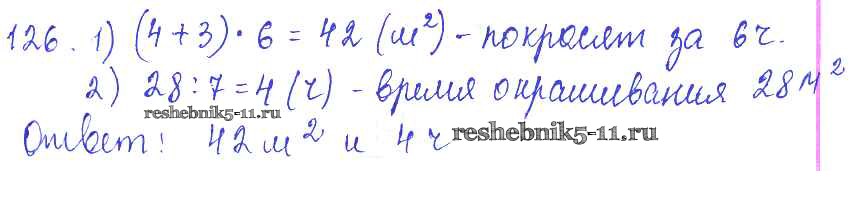 126. 1) (4+3)·6=42 (м²) - покрасят за 6ч.
2) 28:7=4 (ч) - время окрашивания 28м²
reshebnik5-11.ru
Ответ: 42м² и 4ч reshebnik5-11.ru